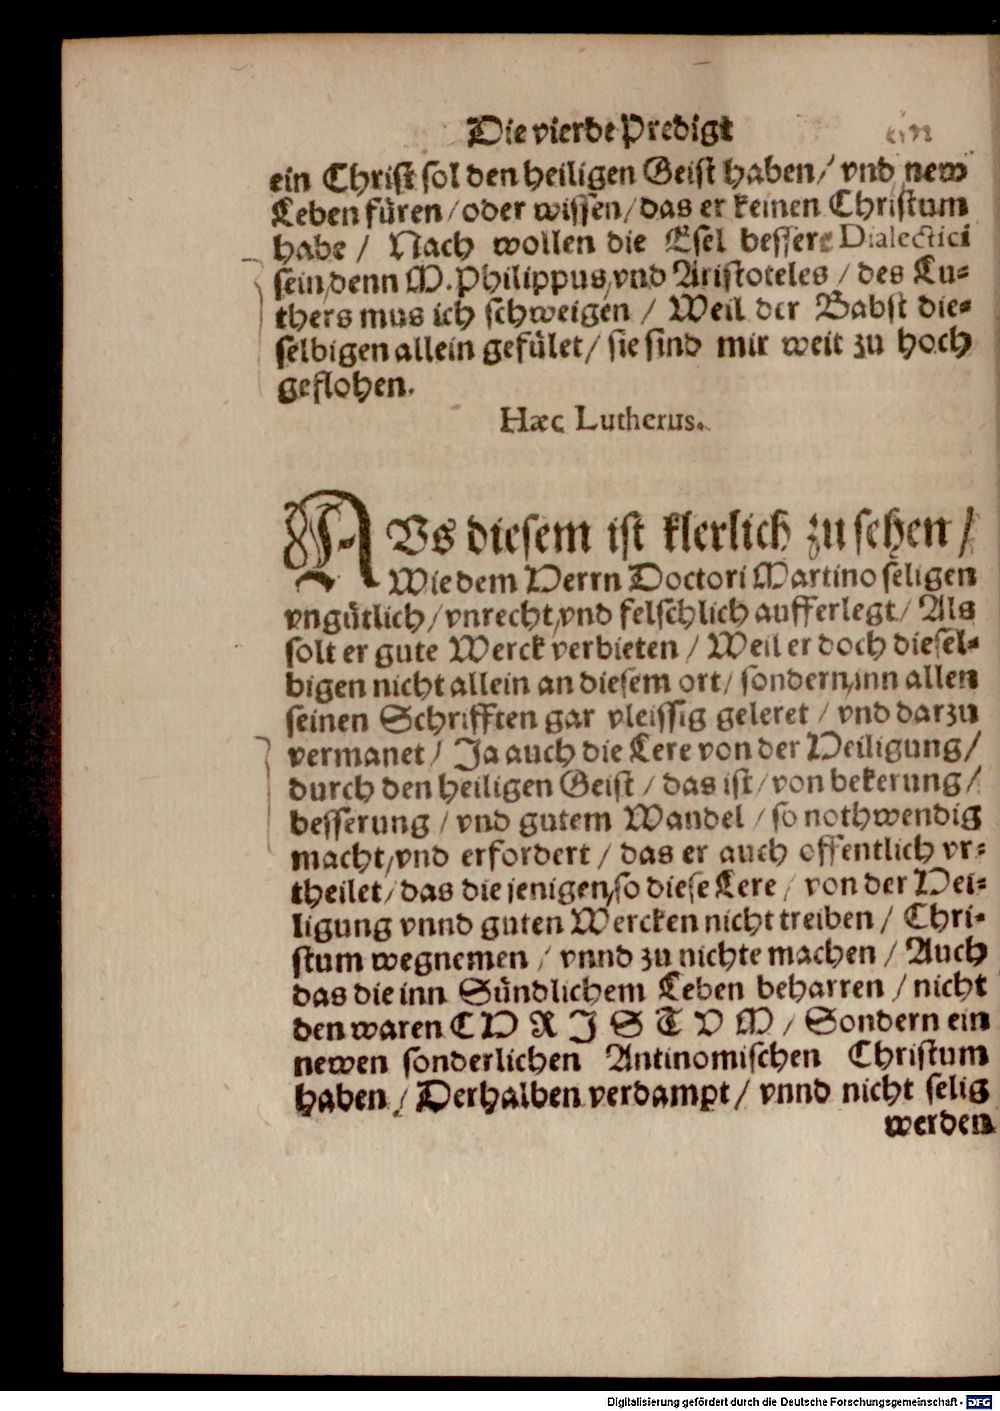 Die vierde Predigt
ein Christ sol den heiligen Geist haben / vnd new
Leben füren / oder wissen / das er keinen Christum
habe / Nach wollen die Esel besser Dialectici
sein / denn M. Philippus / vnd Aristoteles / des Lu-
thers mus ich schweigen / Weil der Babst die-
selbigen allein gefület / sie sind mir weit zu hoch
geflohen.
Hæc Lutherus.
AVs diesem ist klerlich zu sehen /
Wie dem Herrn Doctori Martino seligen
vngütlich / vnrecht / vnd felschlich aufferlegt / Als
solt er gute Werck verbieten / Weil er doch diesel-
bigen nicht allein an diesem ort / sondern / inn allen
seinen Schrifften gar vleissig geleret / vnd darzu
vermanet / Ja auch die Lere von der Heiligung /
durch den heiligen Geist / das ist / von bekerung /
besserung / vnd gutem Wandel / so nothwendig
macht / vnd erfordert / das er auch offentlich vr-
theilet / das die jenigen / so diese Lere / von der Hei-
ligung vnnd guten Wercken nicht treiben / Chri-
stum wegnemen / vnnd zu nichte machen / Auch
das die inn Sündlichem Leben beharren / nicht
den waren C H R I S T V M / Sondern ein
newen sonderlichen Antinomischen Christum
haben / Derhalben verdampt / vnnd nicht selig
werden
Digitalisierung gefördert durch die Deutsche Forschungsgemeinschaft - DFG